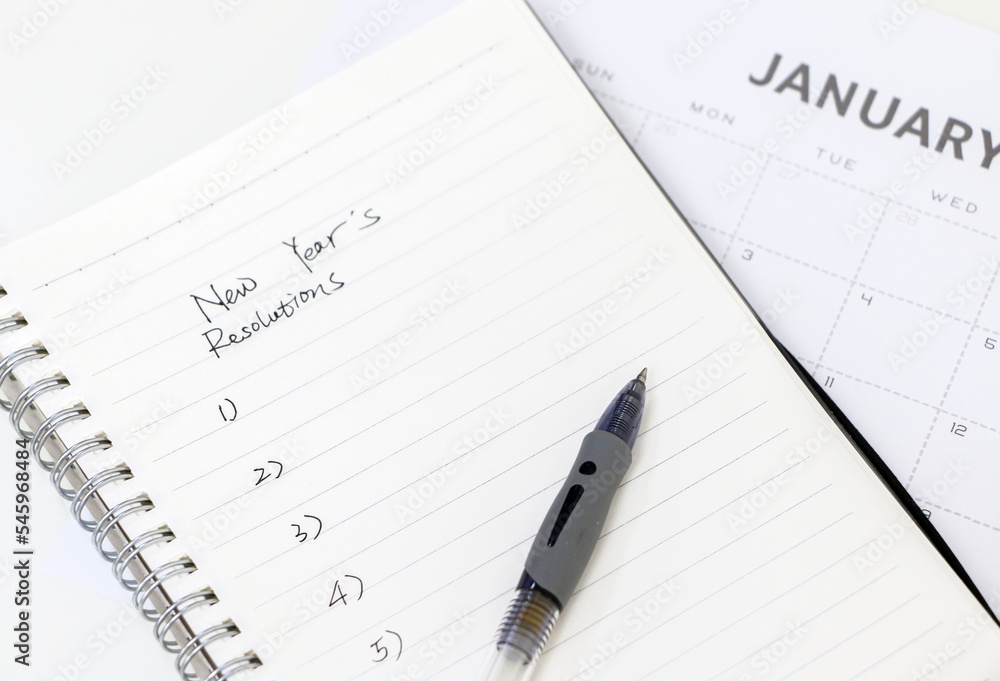 New Year's
Resolutions
1)
2)
3)
4)
5)
JANUARY
SUN
MON
TUE
WED
26
27
28
3
4
5
11
12
Adobe Stock | #545968484